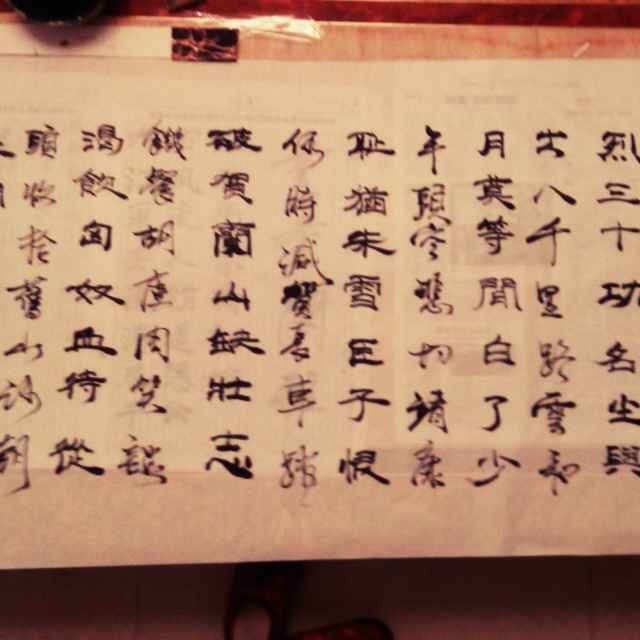 烈三十功名尘與
土八千里路雲和
月莫等閒白了少
年頭空悲切靖康
耻猶未雪臣子恨
何時滅駕長車踏
破賀蘭山缺壯志
饑餐胡虜肉笑談
渴飲匈奴血待從
頭收拾舊山河朝